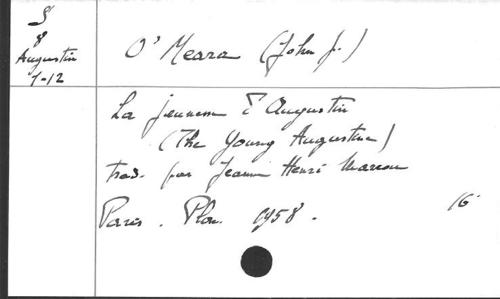 S
8
Augustin
7-12
O'Meara (John J.)
La jeunesse d'Augustin
(The Young Augustine)
trad. par Jeanne Henri Marrou
Paris. Plon. 1958.
16°